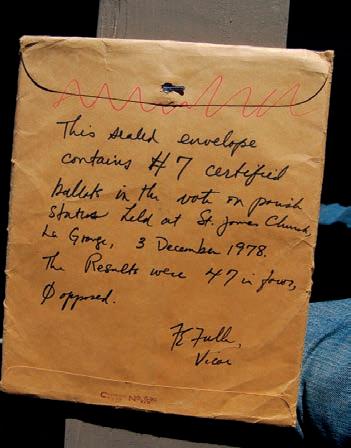 This sealed envelope
contains 47 certified
ballots in the vote on parish
status held at St. James Church,
La Grange, 3 December 1978.
The Results were 47 in favor,
0 opposed.
Fuller,
Vicar